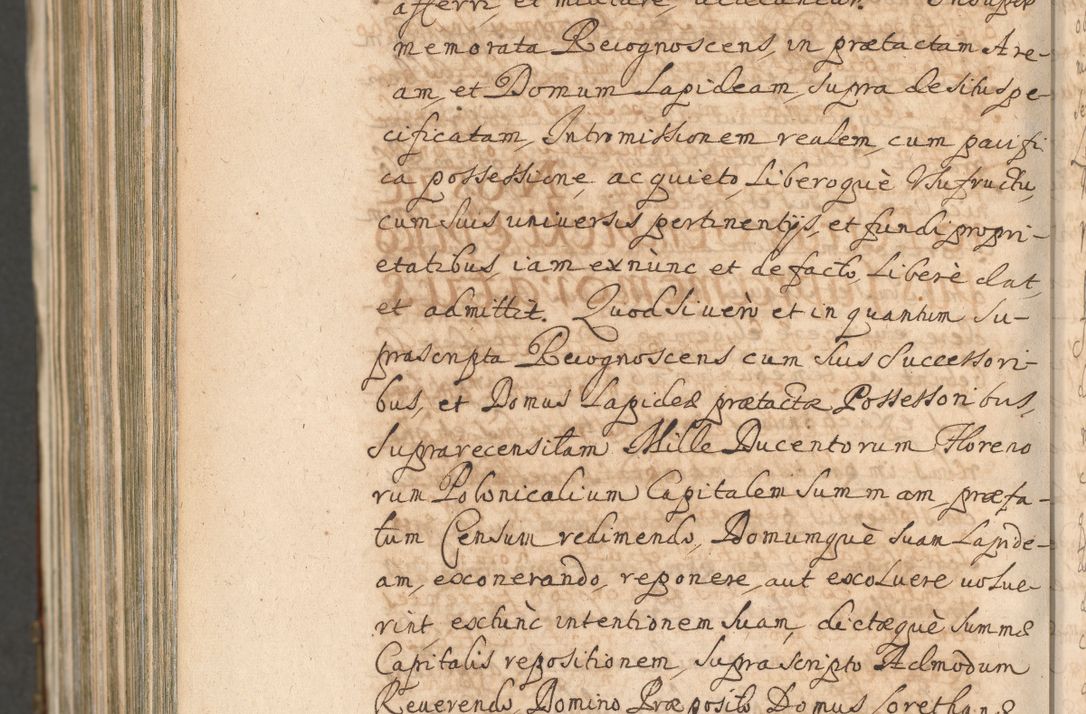 afferri, et
memorata Recognoscens, in prætactam Are-
am, et Domum Lapideam, supra de situ spe-
cificatam, Intromissionem realem, cum pacifi
ca possessione, ac quieto, Liberoquè Usufructu,
cum suis universis pertinentijs, et fundi propri-
etatibus, iam ex nùnc et de facto Liberè dat,
et admittit. Quod si verò et in quantum su-
prascripta Recognoscens cum suis Successori-
bus, et Domus Lapideæ prætactæ Possessoribus,
suprarecensitam Mille Ducentorum Floreno
rum Polonicalium Capitalem summam, præfa-
tum Censum redimendo, Domumquè suam Lapide-
am, exonerando, reponere, aut exoluere uolue
rint, extùnc intentionem suam, dictæquè summæ
Capitalis repositionem, suprascripto Admodum
Reuerendo, Domino Præposito Domus Lorethanæ